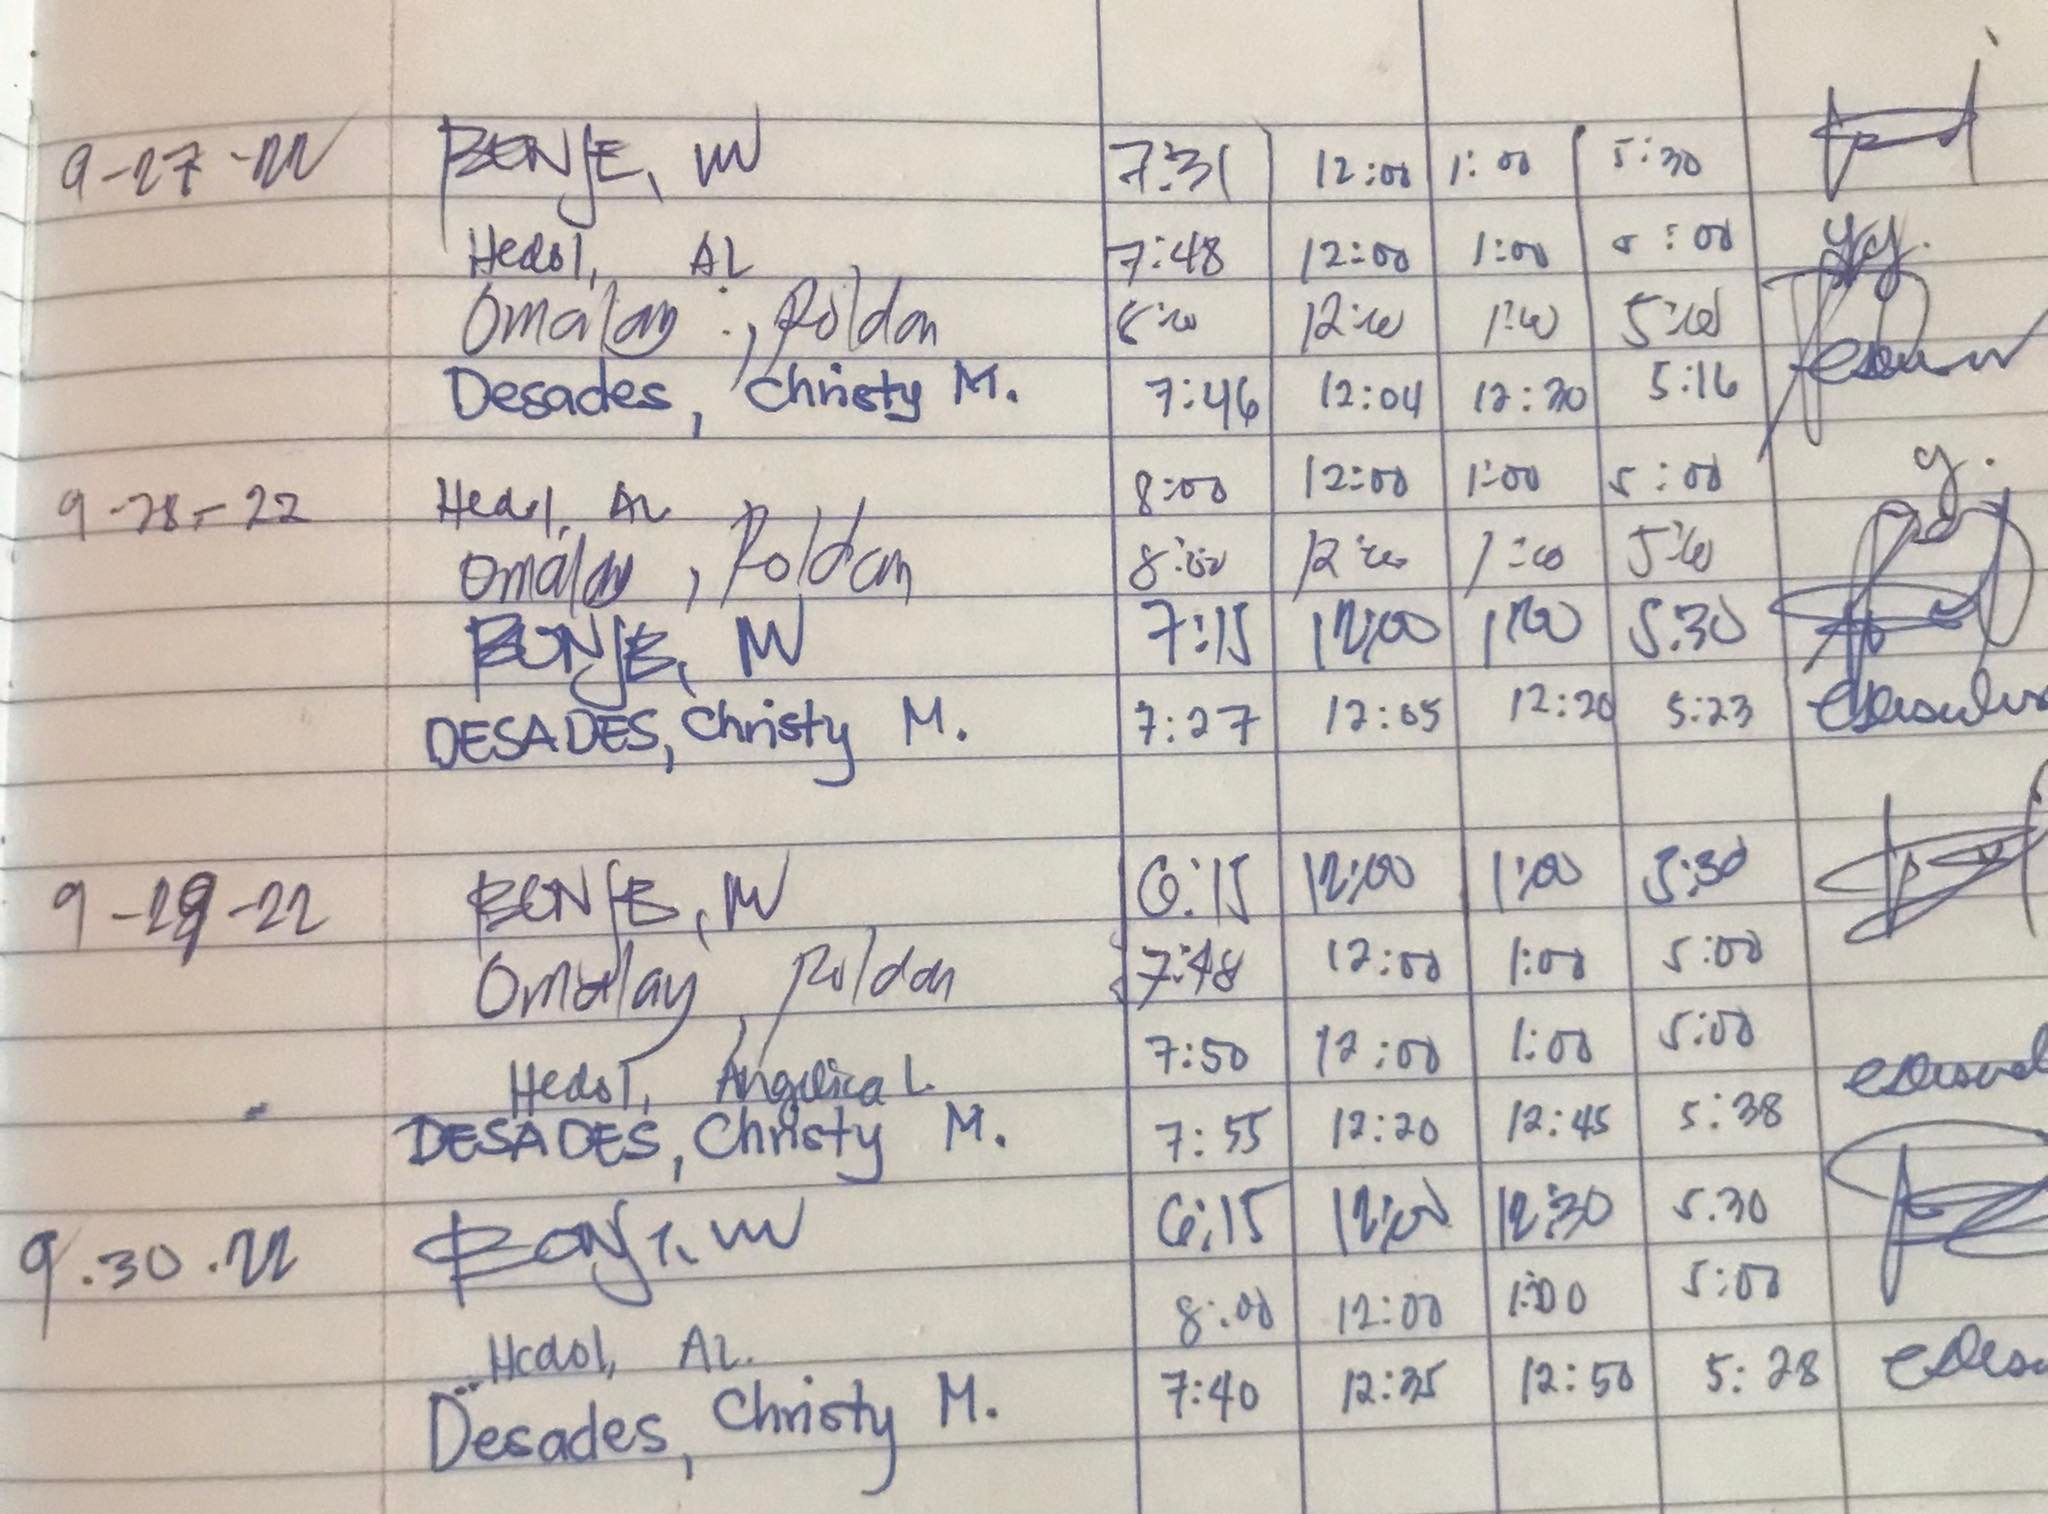 9-27-22 BONJE, W 7:31 12:00 1:00 5:30
Hedol, AL 7:48 12:00 1:00 5:00
Omalay, Roldan 8:00 12:00 1:00 5:00
Desades, Christy M. 7:46 12:04 12:20 5:16
9-28-22 Hedol, AL 8:00 12:00 1:00 5:00
Omalay, Roldan 8:00 12:00 1:00 5:00
BONJE, W 7:15 12:00 1:00 5:30
DESADES, Christy M. 7:27 12:05 12:20 5:23
9-29-22 BONJE, W 6:15 12:00 1:00 5:30
Omalay, Roldan 7:48 12:00 1:00 5:00
Hedol, Angelica L. 7:50 12:00 1:00 5:00
DESADES, Christy M. 7:55 12:20 12:45 5:38
9.30.22 6:15 12:00 12:30 5.30
Hedol, AL. 8:00 12:00 1:00 5:00
Desades, Christy M. 7:40 12:35 12:50 5:28